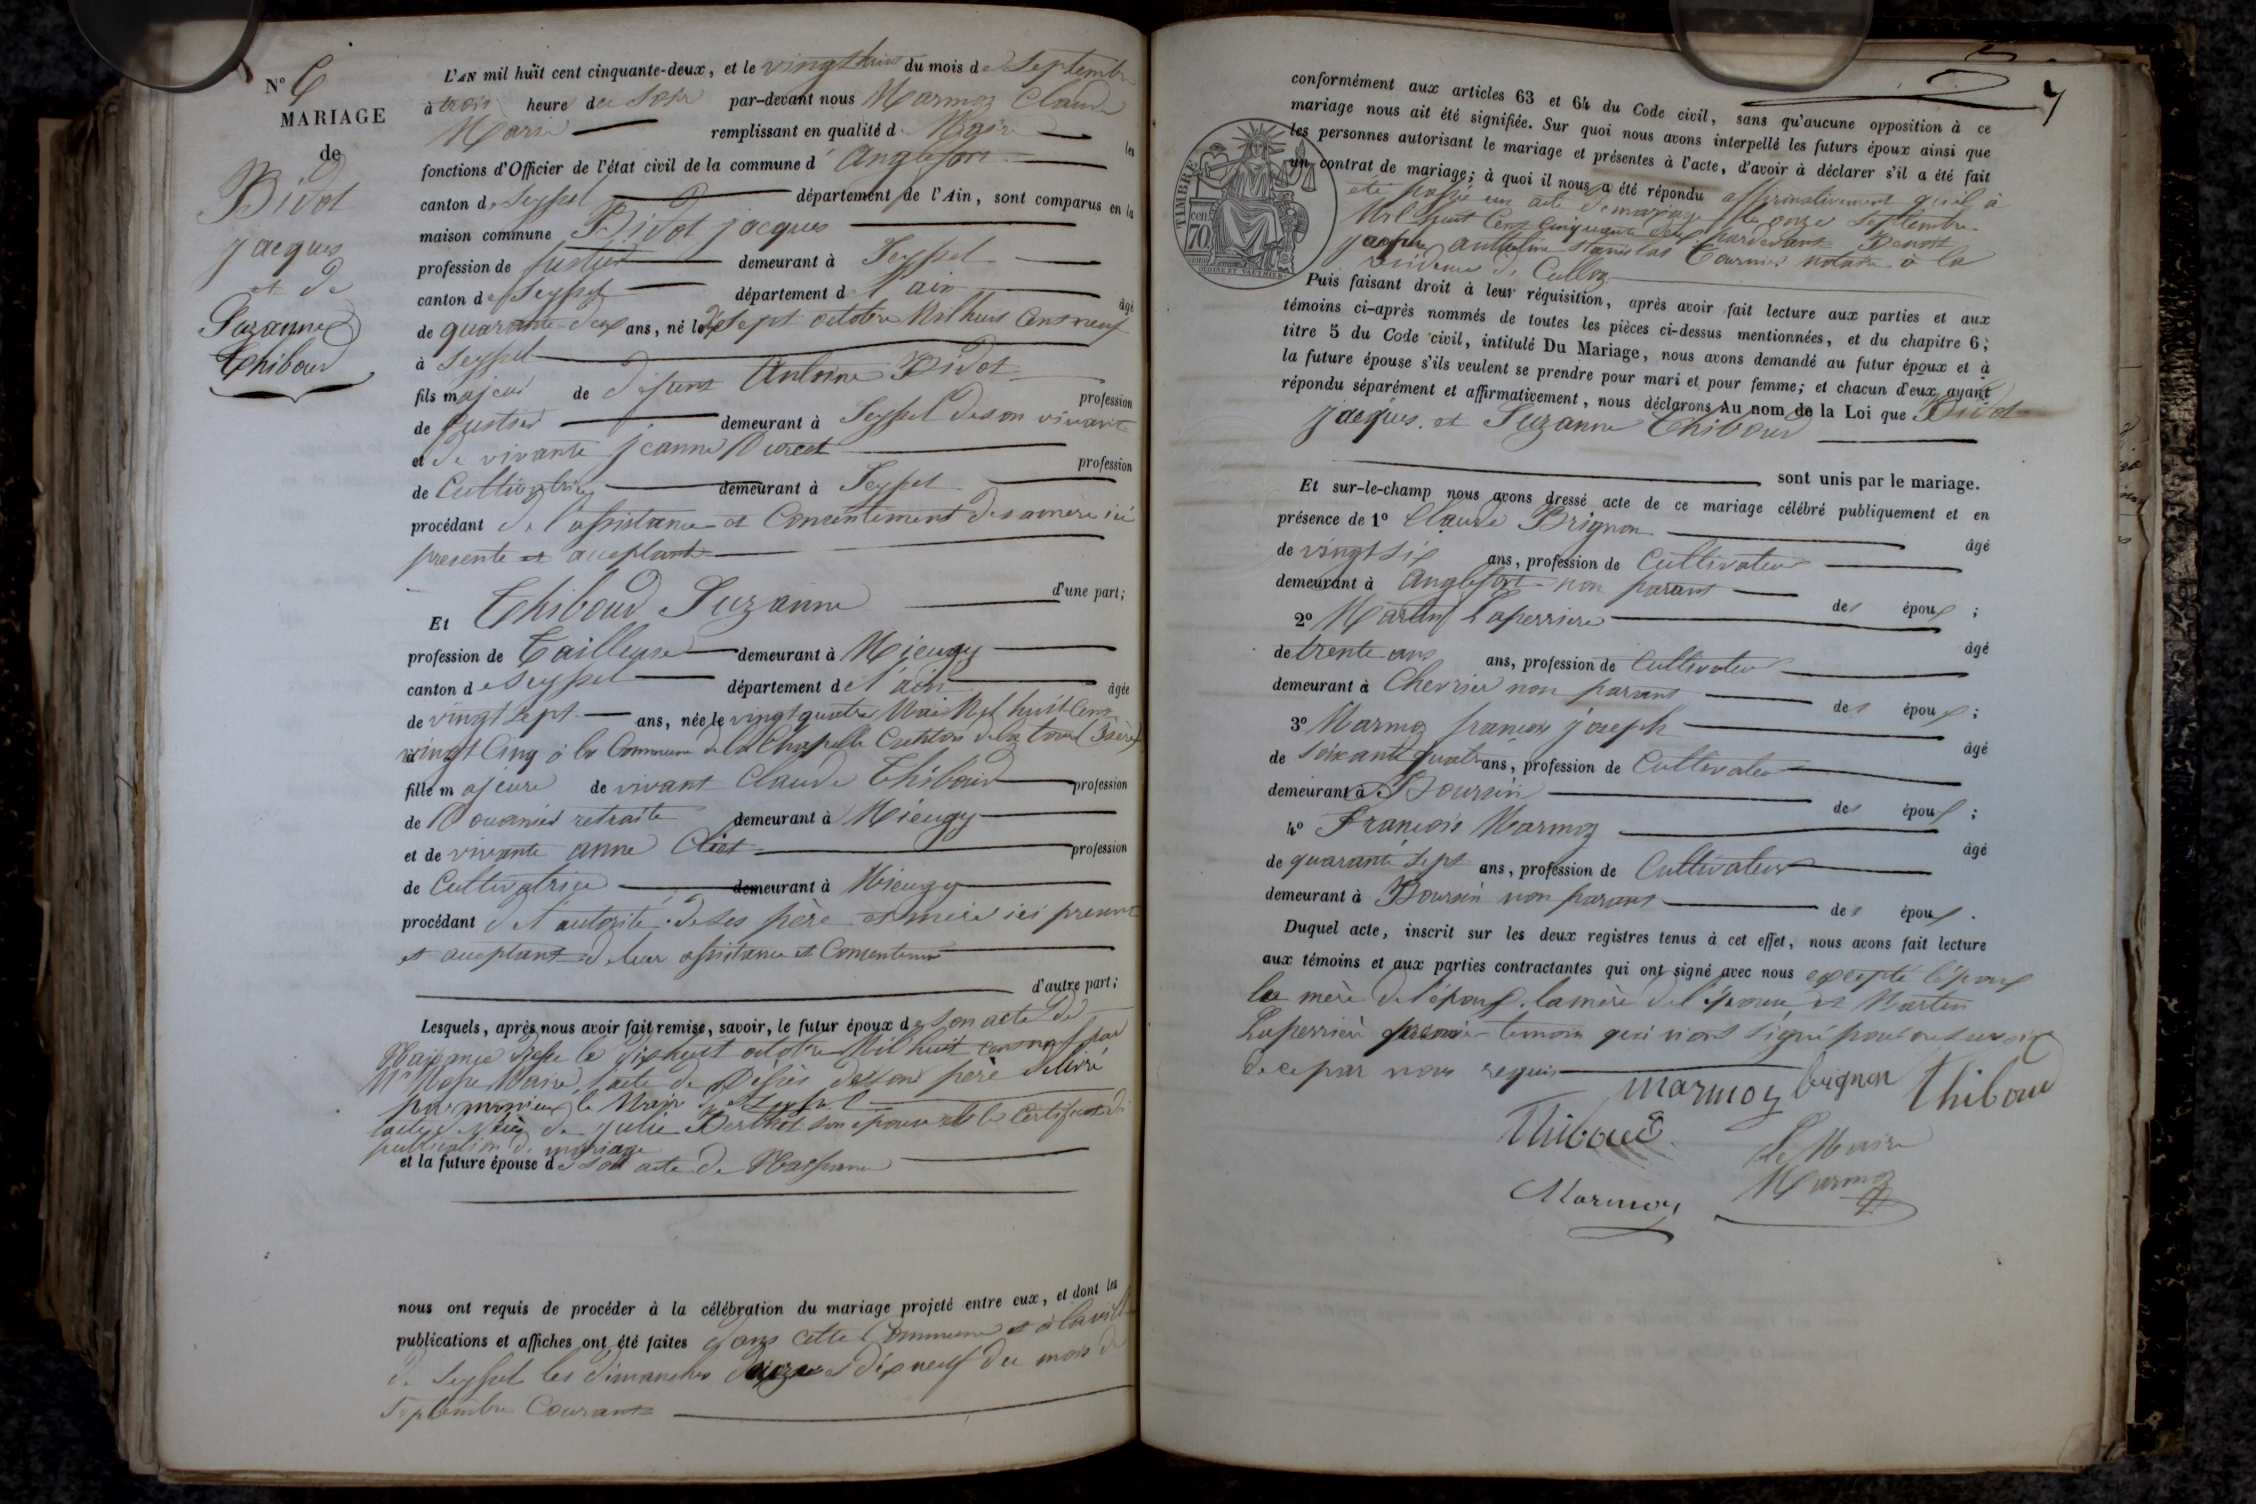 N° 6
MARIAGE
de
Bidot
jacques
et de
Suzanne
Thiboud
L'AN mil huit cent cinquante-deux, et le vingt huit du mois de Septembre
à trois heure du soir par-devant nous Marmoz Claude
Marie remplissant en qualité de Maire les
fonctions d'Officier de l'état civil de la commune d'anglefort
canton de Seyssel département de l'Ain, sont comparus en la
maison commune Bidot jacques
profession de demeurant à Seyssel
canton de Seyssel département de l'ain âgé
de quarante deux ans, né le dix sept octobre Mil huit Cent neuf
à Seyssel
fils majeur de défunt Antoine Bidot profession
de demeurant à Seyssel de son vivant
et de vivante jeanne profession
de Cultivatrice demeurant à Seyssel
procédant de l'assistance et Consentement de sa mère ici
presente et acceptante
d'une part;
Et Thiboud Suzanne
profession de Tailleuse demeurant à Mieugy
canton de Seyssel département de l'ain âgée
de vingt sept ans, née le vingt quatre Mai Mil huit Cent
vingt Cinq à la Commune de la Chapelle Canton de la tour (Isère)
fille majeure de vivant Claude Thiboud profession
de Douanier retraité demeurant à Mieugy
et de vivante anne profession
de Cultivatrice demeurant à Mieugy
procédant de l'autorité de ses père et mère ici present
et acceptant de leur assistance et Consentement
d'autre part;
Lesquels, après nous avoir fait remise, savoir, le futur époux de son acte de
Naissance le dix huit octobre Mil huit cent neuf par
Maire, l'acte de Décès de son père délivré
par le Maire de Seyssel
l'acte de décès de julie Berthet son épouse et le Certificat de
publication de mariage
et la future épouse de son acte de Naissance
nous ont requis de procéder à la célébration du mariage projeté entre eux, et dont les
publications et affiches ont été faites dans cette Commune et à la ville
de Seyssel les dimanches douze et dix neuf du mois de
Septembre Courant
7
conformément aux articles 63 et 64 du Code civil, sans qu'aucune opposition à ce
mariage nous ait été signifiée. Sur quoi nous avons interpellé les futurs époux ainsi que
les personnes autorisant le mariage et présentes à l'acte, d'avoir à déclarer s'il a été fait
un contrat de mariage; à quoi il nous a été répondu affirmativement qu'il à
été passé un acte de mariage le onze Septembre
Mil huit Cent Cinquante deux pardevant Benoit
anthelme stanislas Tournier notaire à la
résidence de Culloz
TIMBRE
70 cen
Puis faisant droit à leur réquisition, après avoir fait lecture aux parties et aux
témoins ci-après nommés de toutes les pièces ci-dessus mentionnées, et du chapitre 6;
titre 5 du Code civil, intitulé Du Mariage, nous avons demandé au futur époux et à
la future épouse s'ils veulent se prendre pour mari et pour femme; et chacun d'eux ayant
répondu séparément et affirmativement, nous déclarons Au nom de la Loi que Bidot
jacques et Suzanne Thiboud
sont unis par le mariage.
Et sur-le-champ nous avons dressé acte de ce mariage célébré publiquement et en
présence de 1° Claude Brignon âgé
de vingt six ans, profession de Cultivateur
demeurant à anglefort non parant des époux ;
2° Martin Laperriere âgé
de trente ans ans, profession de Cultivateur
demeurant à Chevrier non parant des époux ;
3° Marmoz françois joseph âgé
de soixante quatre ans, profession de Cultivateur
demeurant à Boursin des époux ;
4° François Marmoz âgé
de quarante sept ans, profession de Cultivateur
demeurant à Boursin non parant des époux.
Duquel acte, inscrit sur les deux registres tenus à cet effet, nous avons fait lecture
aux témoins et aux parties contractantes qui ont signé avec nous excepté l'époux
la mère de l'époux, la mère de l'épouse et Martin
Laperrière temoin qui n'ont signé pour ne savoir
de ce par nous requis
Marmoz brignon Thiboud
Thiboud
le Maire
Marmoz
Marmoz